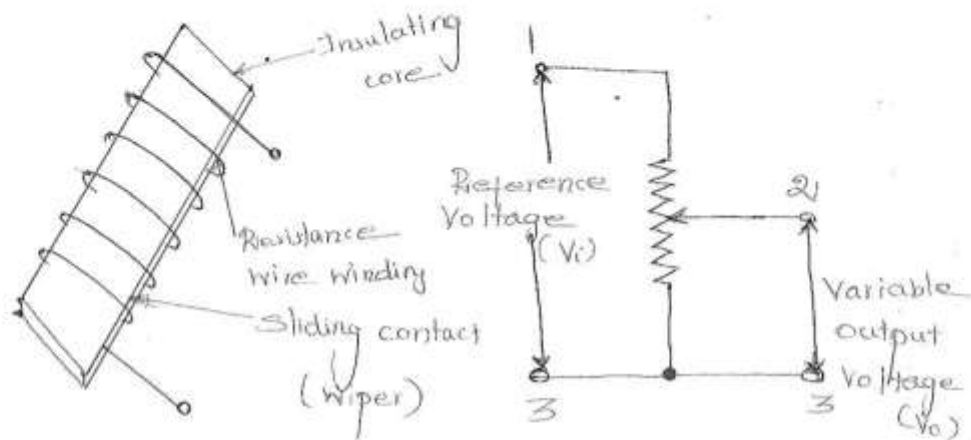 Insulating
core
Resistance
wire winding
Sliding contact
(Wiper)
1
Reference
Voltage
(Vi)
2
Variable
output
Voltage
(Vo)
3
3